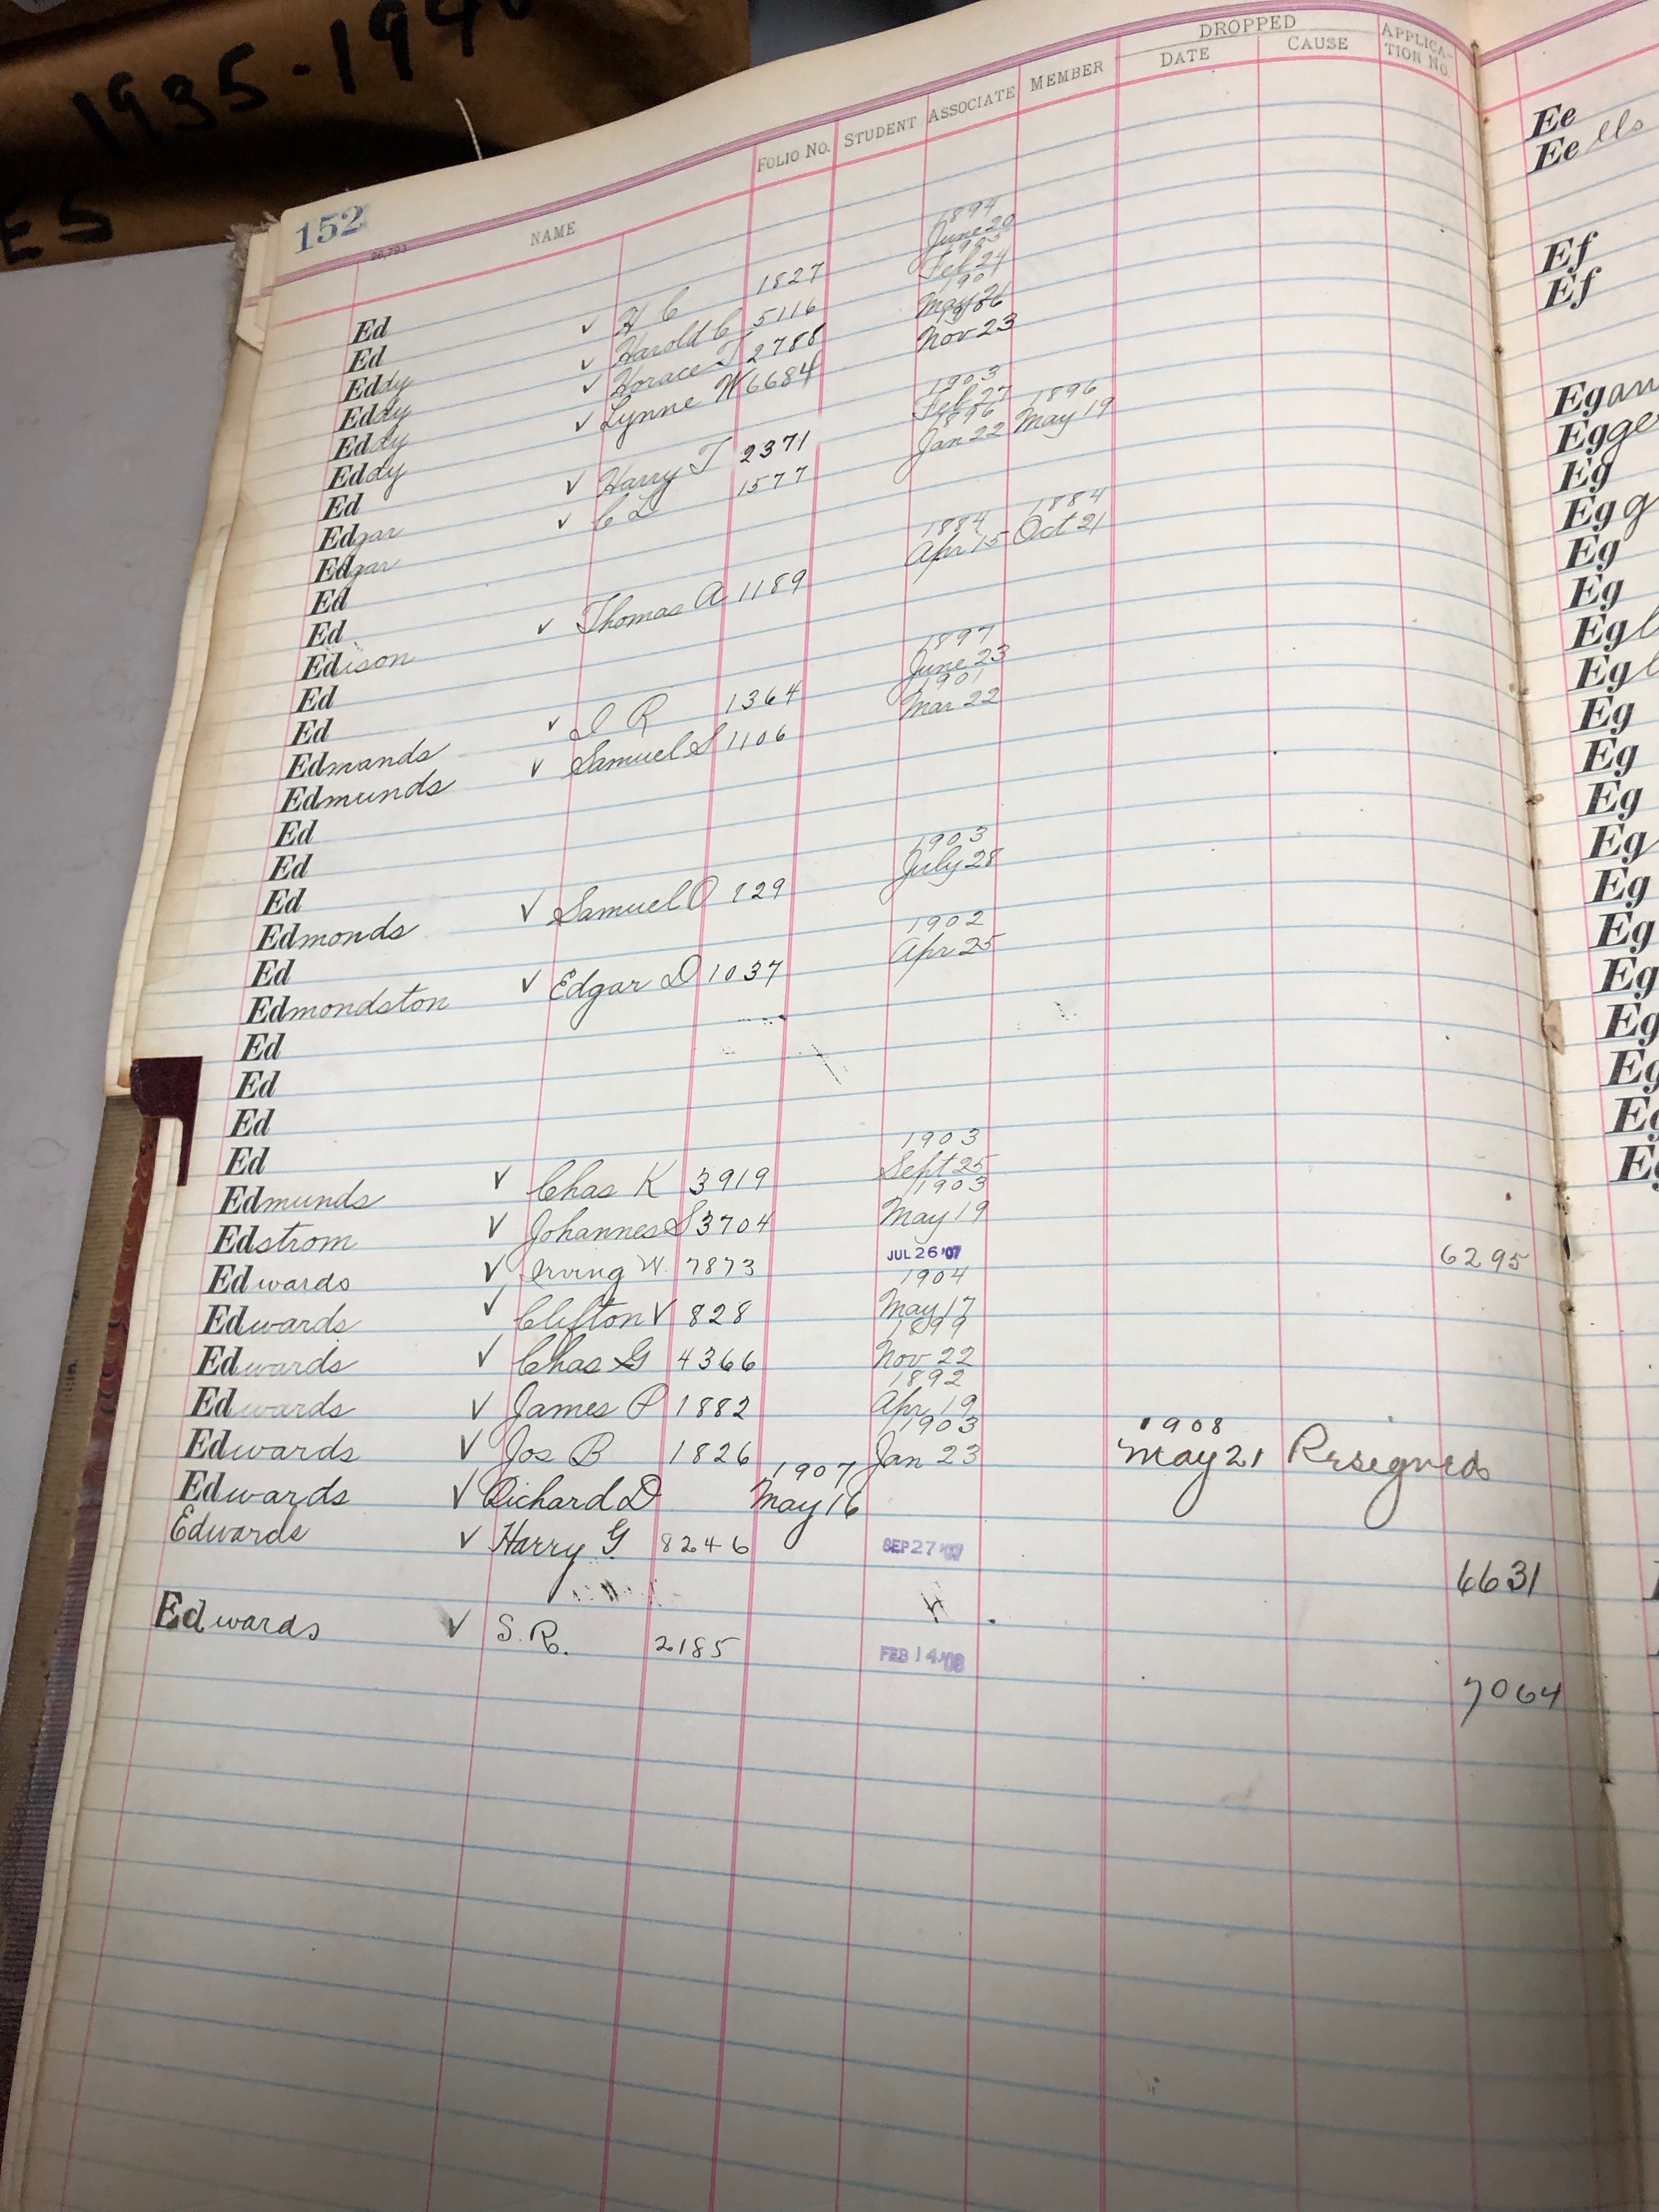 1935-194
ES
152
NAME FOLIO NO. STUDENT ASSOCIATE MEMBER DROPPED DATE CAUSE APPLICA-TION NO.
Ed
Ed
1894
Eddy ✓ H C 1827 June 20
Eddy ✓ Harold C 5116 Feb 24
Eddy ✓ Horace T 2788
Eddy ✓ Lynne W 6684 Nov 23
Ed
1903
Edgar ✓ Harry T 2371 Feb 27
1896 1896
Edgar ✓ C L 1577 Jan 22 May 19
Ed
Ed
1884 1884
Edison ✓ Thomas A 1189 Apr 15 Oct 21
Ed
Ed
1897
Edmands ✓ I R 1364 June 23
1901
Edmunds ✓ Samuel S 1106 Mar 22
Ed
Ed
Ed
1903
Edmonds ✓ Samuel O 829 July 28
Ed
1902
Edmondston ✓ Edgar D 1037 Apr 25
Ed
Ed
Ed
Ed
1903
Edmunds ✓ Chas K 3919 Sept 25
1903
Edstrom ✓ Johannes S 3704 May 19
Edwards ✓ Irving W. 7873 JUL 26 '07 6295
1904
Edwards ✓ Clifton V 828 May 17
1899
Edwards ✓ Chas G 4366 Nov 22
1892
Edwards ✓ James P 1882 Apr 19
1903 1908
Edwards ✓ Jos B 1826 Jan 23 May 21 Resigned
1907
Edwards ✓ Richard D May 16
Edwards ✓ Harry G 8246 SEP 27 '07 6631
Edwards ✓ S. R. 2185 FEB 14 '08 7064
Ee
Ee lls
Ef
Ef
Egan
Egge
Eg
Egg
Eg
Eg
Egl
Egl
Eg
Eg
Eg
Eg
Eg
Eg
Eg
Eg
Eg
Eg
Eg